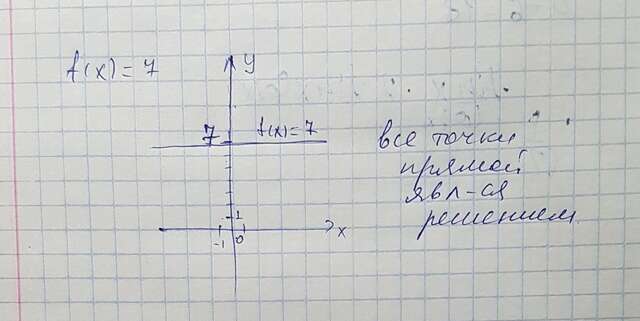 f(x) = 7
y
7
f(x) = 7
1
-1
0
x
все точки
прямой
явл-ся
решением